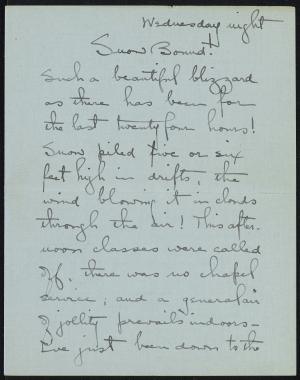 Wednesday night
Snow Bound!
Such a beautiful blizzard
as there has been for
the last twenty four hours!
Snow piled five or six
feet high in drifts, the
wind blowing it in clouds
through the air! This after-
noon classes were called
off, there was no chapel
service, and a general air
of jollity prevails indoors—
I've just been down to the